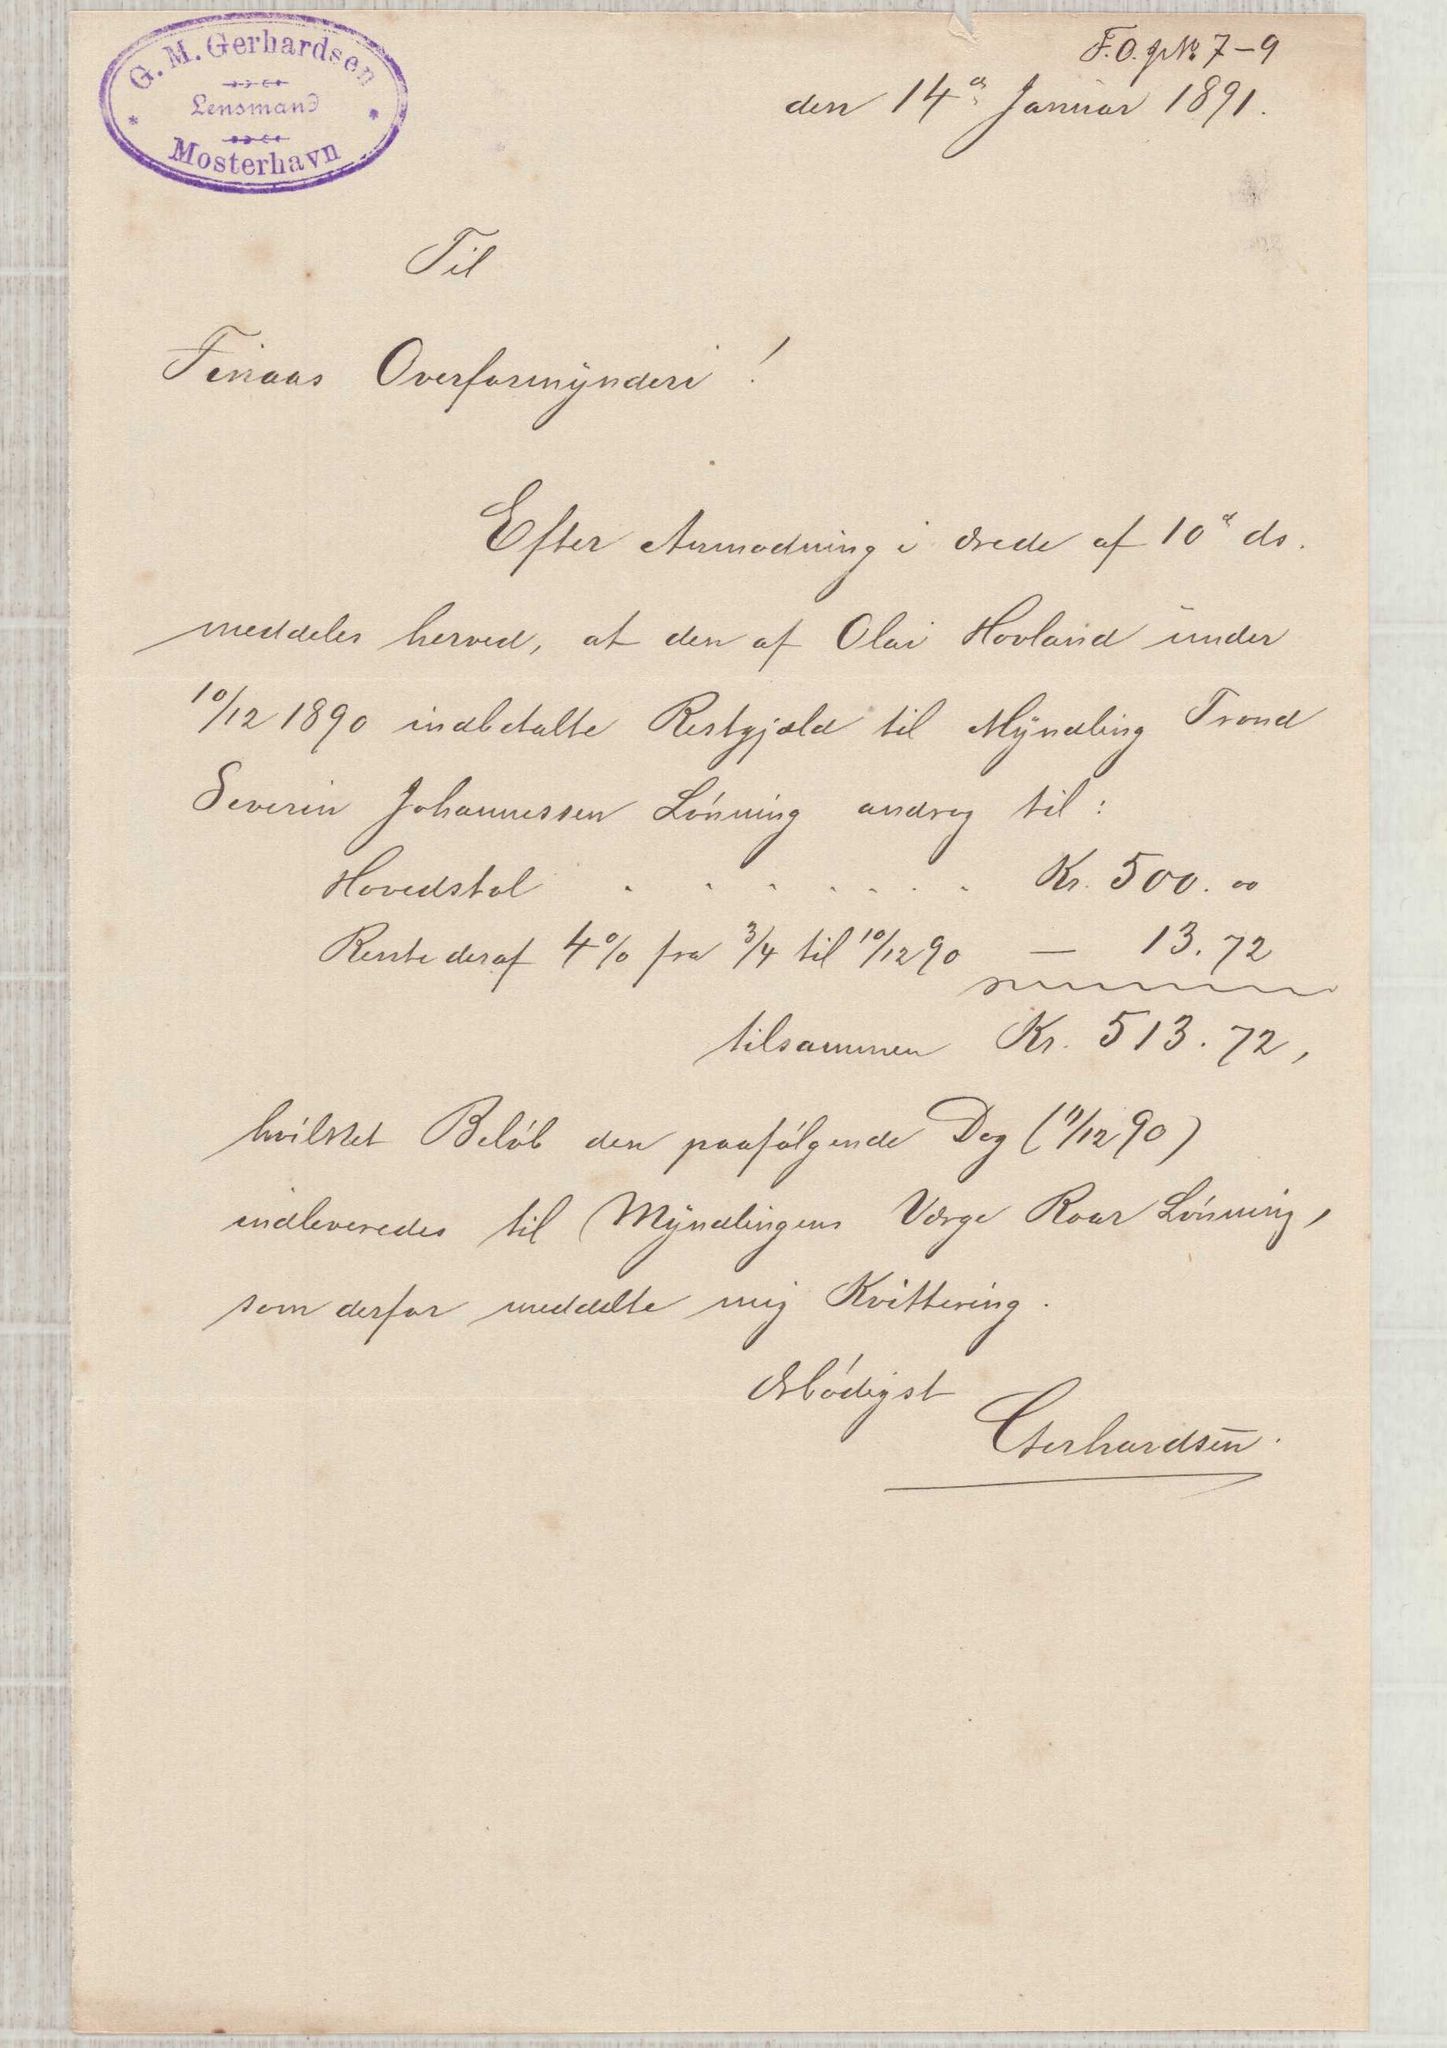 G. M. Gerhardsen
Lensmand
Mosterhavn
F.O. jNr 7-9
den 14de Januar 1891.
Til
Finaas Overformynderi!
Efter Anmodning i Brede af 10d ds.
meddeles herved, at den af Olai Hovland under
10/12 1890 indbetalte Restgjæld til Myndling Trond
Severin Johannessen Lønning androg til:
Hovedstol . . . . . . . Kr. 500. 00
Rente deraf 4% fra 3/4 til 10/12 90 — 13. 72
tilsammen Kr. 513. 72,
hvilket Beløb den paafølgende Dag (11/12 90)
indleveredes til Myndlingens Værge Roar Lønning,
som derfor meddelte mig Kvittering.
Ærbødigst
Gerhardsen.